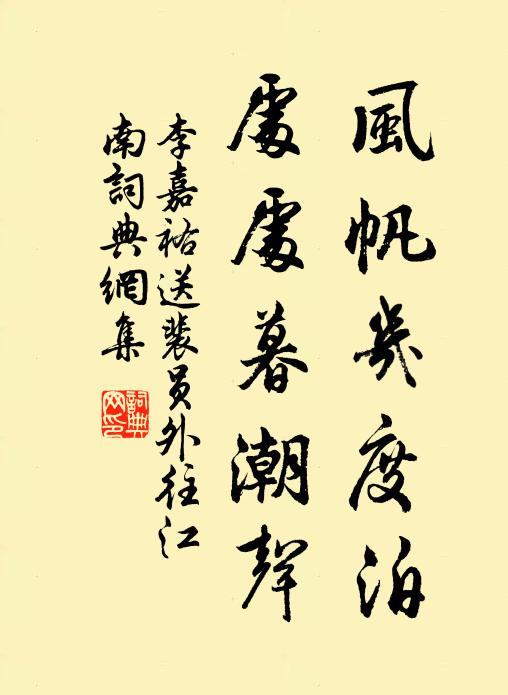 風帆幾度泊
處處暮潮聲
李嘉祐送裴員外往江
南詞典網集
詞典
网印